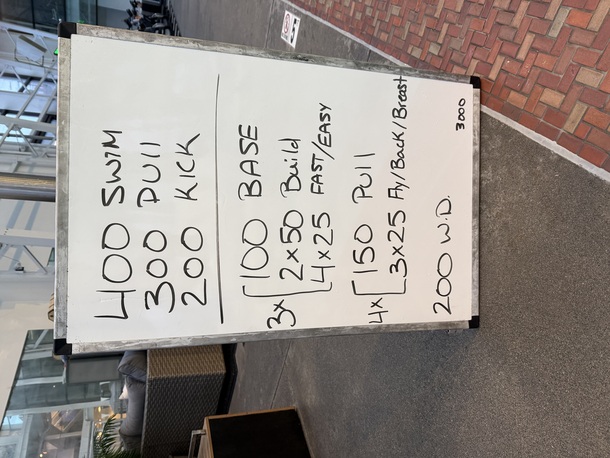 400 SWIM
300 PUll
200 KICK
3x [100 BASE
2x50 Build
4x25 FAST/EASY
4x [150 PUll
3x25 Fly/Back/Breast
200 W.D.
3000